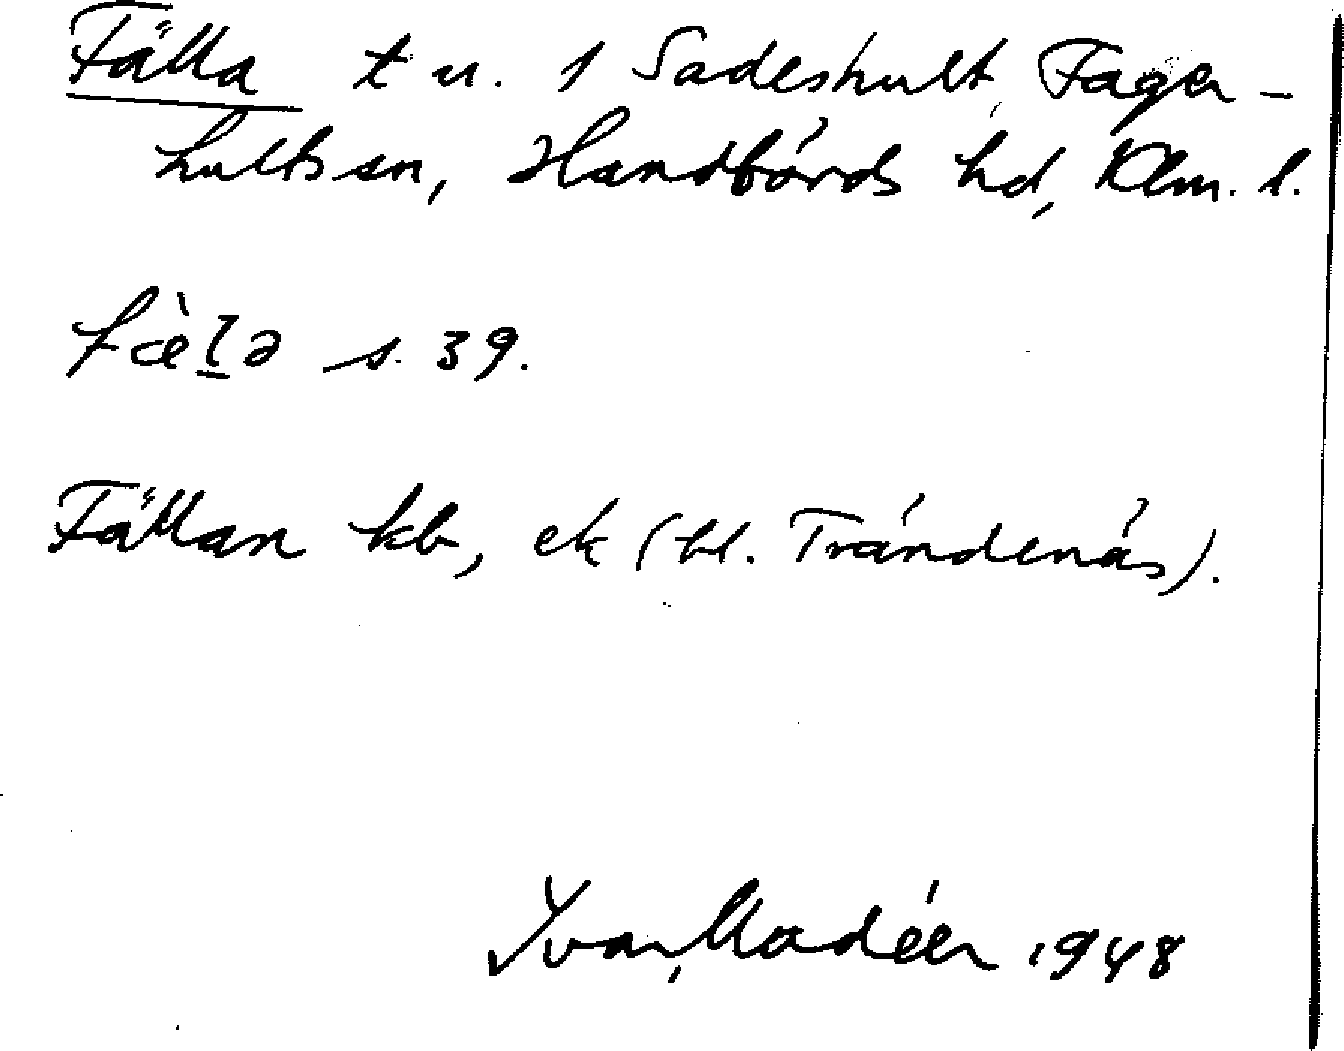 Fälla t u. 1 Sadeshult, Fager-
hults sn, Handbörds hd, Klm. l.
fæ̀l̲ə s. 39.
Fällan kb, ek (bl. Trändenäs).
Ivar Modéer 1948